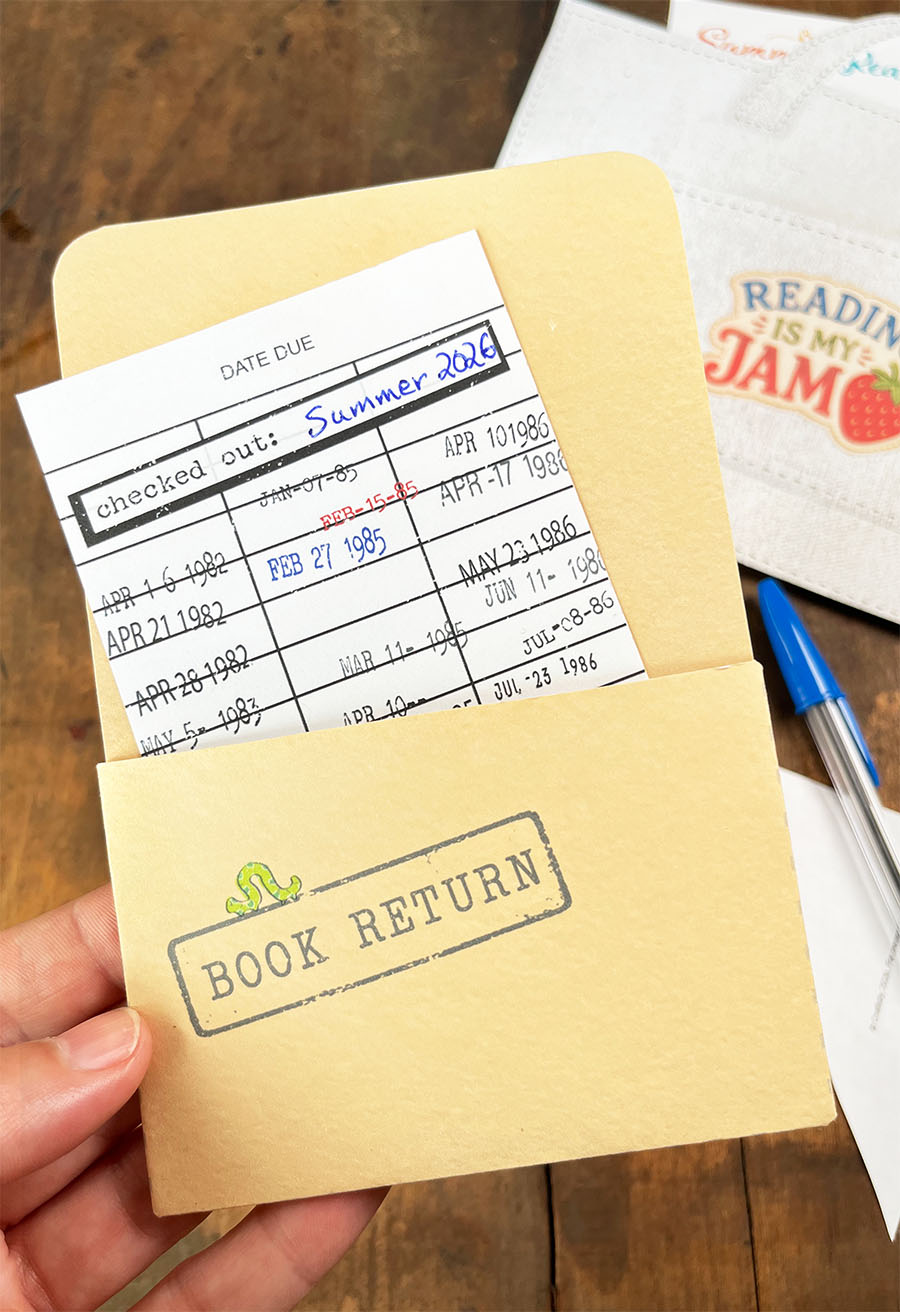 Summer
DATE DUE
checked out: Summer 2026
APR 16 1982
APR 21 1982
APR 28 1982
MAY 5- 1983
JAN-07-85
FEB-15-85
FEB 27 1985
MAR 11- 1985
APR 10--
APR 10 1986
APR -17 1986
MAY 23 1986
JUN 11- 1986
JUL-08-86
JUL -23 1986
READING
IS MY
JAM
BOOK RETURN